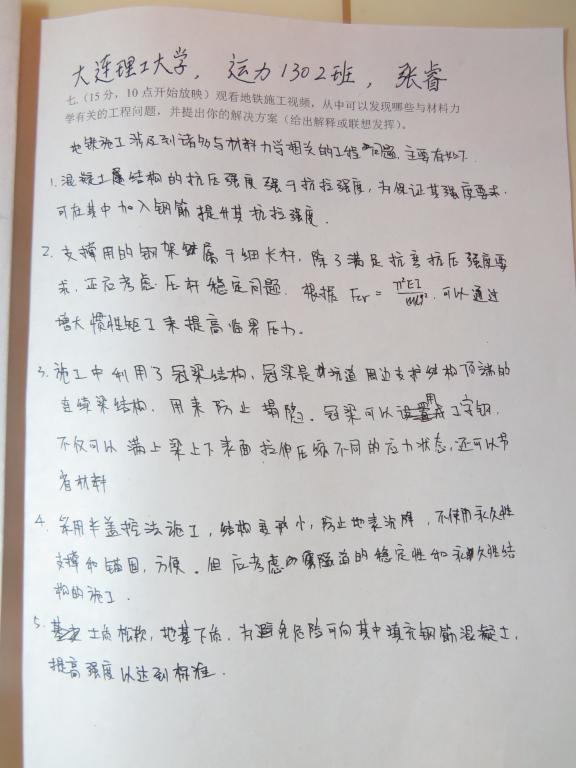 大连理工大学，运力1302班，张睿
七.（15分，10点开始放映）观看地铁施工视频，从中可以发现哪些与材料力
学有关的工程问题，并提出你的解决方案（给出解释或联想发挥）。
地铁施工涉及到诸多与材料力学相关的工程问题，主要有如下
1.混凝土结构的抗压强度强于抗拉强度，为保证其强度要求，
可在其中加入钢筋提升其抗拉强度．
2. 支撑用的钢架属于细长杆，除了满足抗弯抗压强度要
求，还应考虑压杆稳定问题．根据 Fcr = π²EI/(μl)²，可以通过
增大惯性矩I来提高临界压力。
3. 施工中利用了冠梁结构，冠梁是基坑道周边支护结构顶端的
连续梁结构．用来防止塌陷．冠梁可以用工字钢，
不仅可以满上梁上下表面拉伸压缩不同的应力状态，还可以节
省材料
4. 采用半盖挖法施工，结构变形小，防止地表沉降，不使用永久性
支撑和锚固，方便．但应考虑隧道的稳定性和永久性结
构的施工．
5. 土质松软，地基下质．为避免危险可向其中填充钢筋混凝土，
提高强度以达到标准．